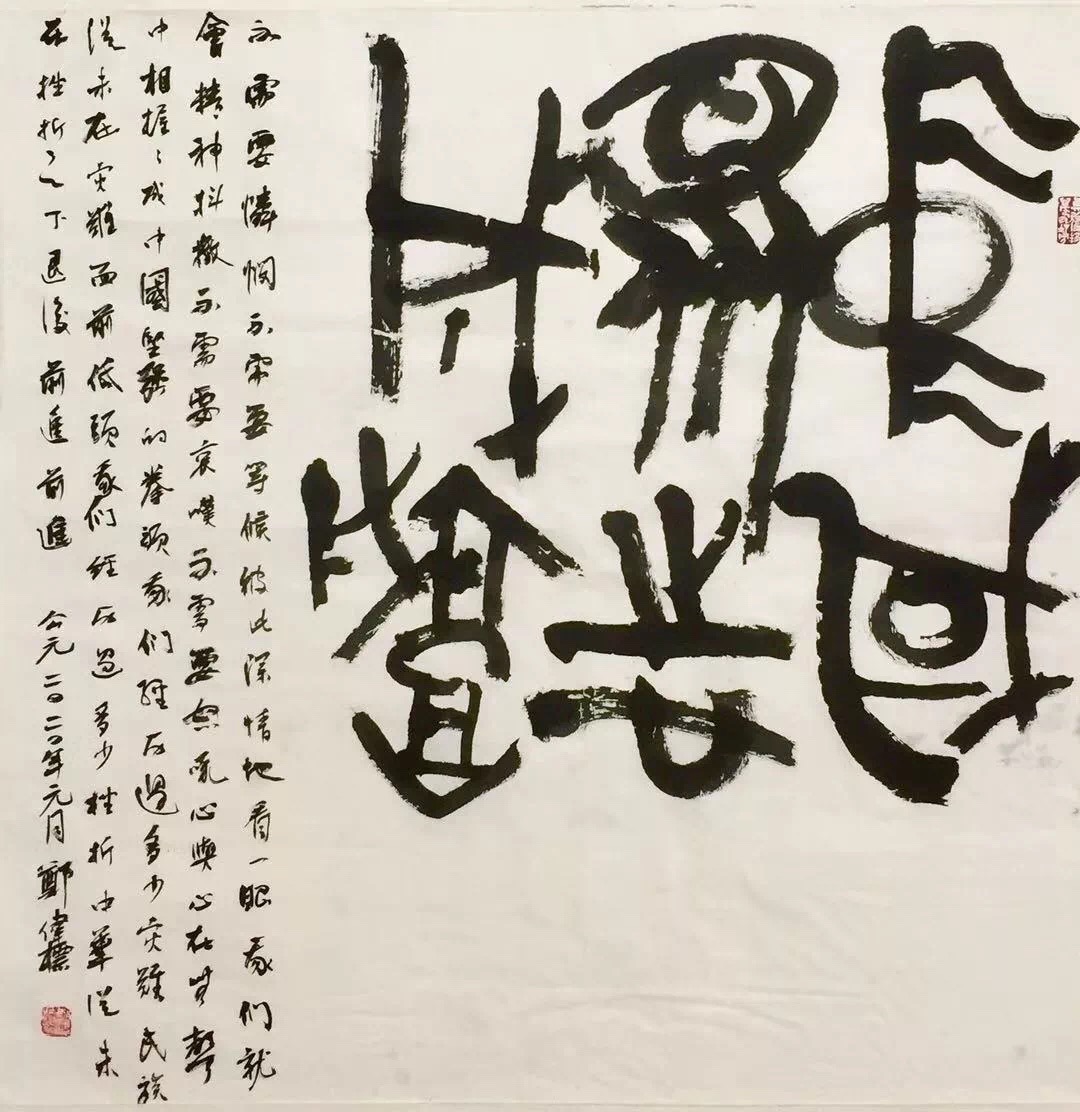 中國
眾志
成城
不需要憐憫不需要等候彼此深情地看一眼我們就
會精神抖擻不需要哀嘆不需要吼心與心在無聲
中相握〻成中國堅強的拳頭我們經歷過多少灾難民族
從未在灾難面前低頭我們經歷過多少挫折中華從未
在挫折之下退後前進前進 公元二〇二〇年元月鄭偉標